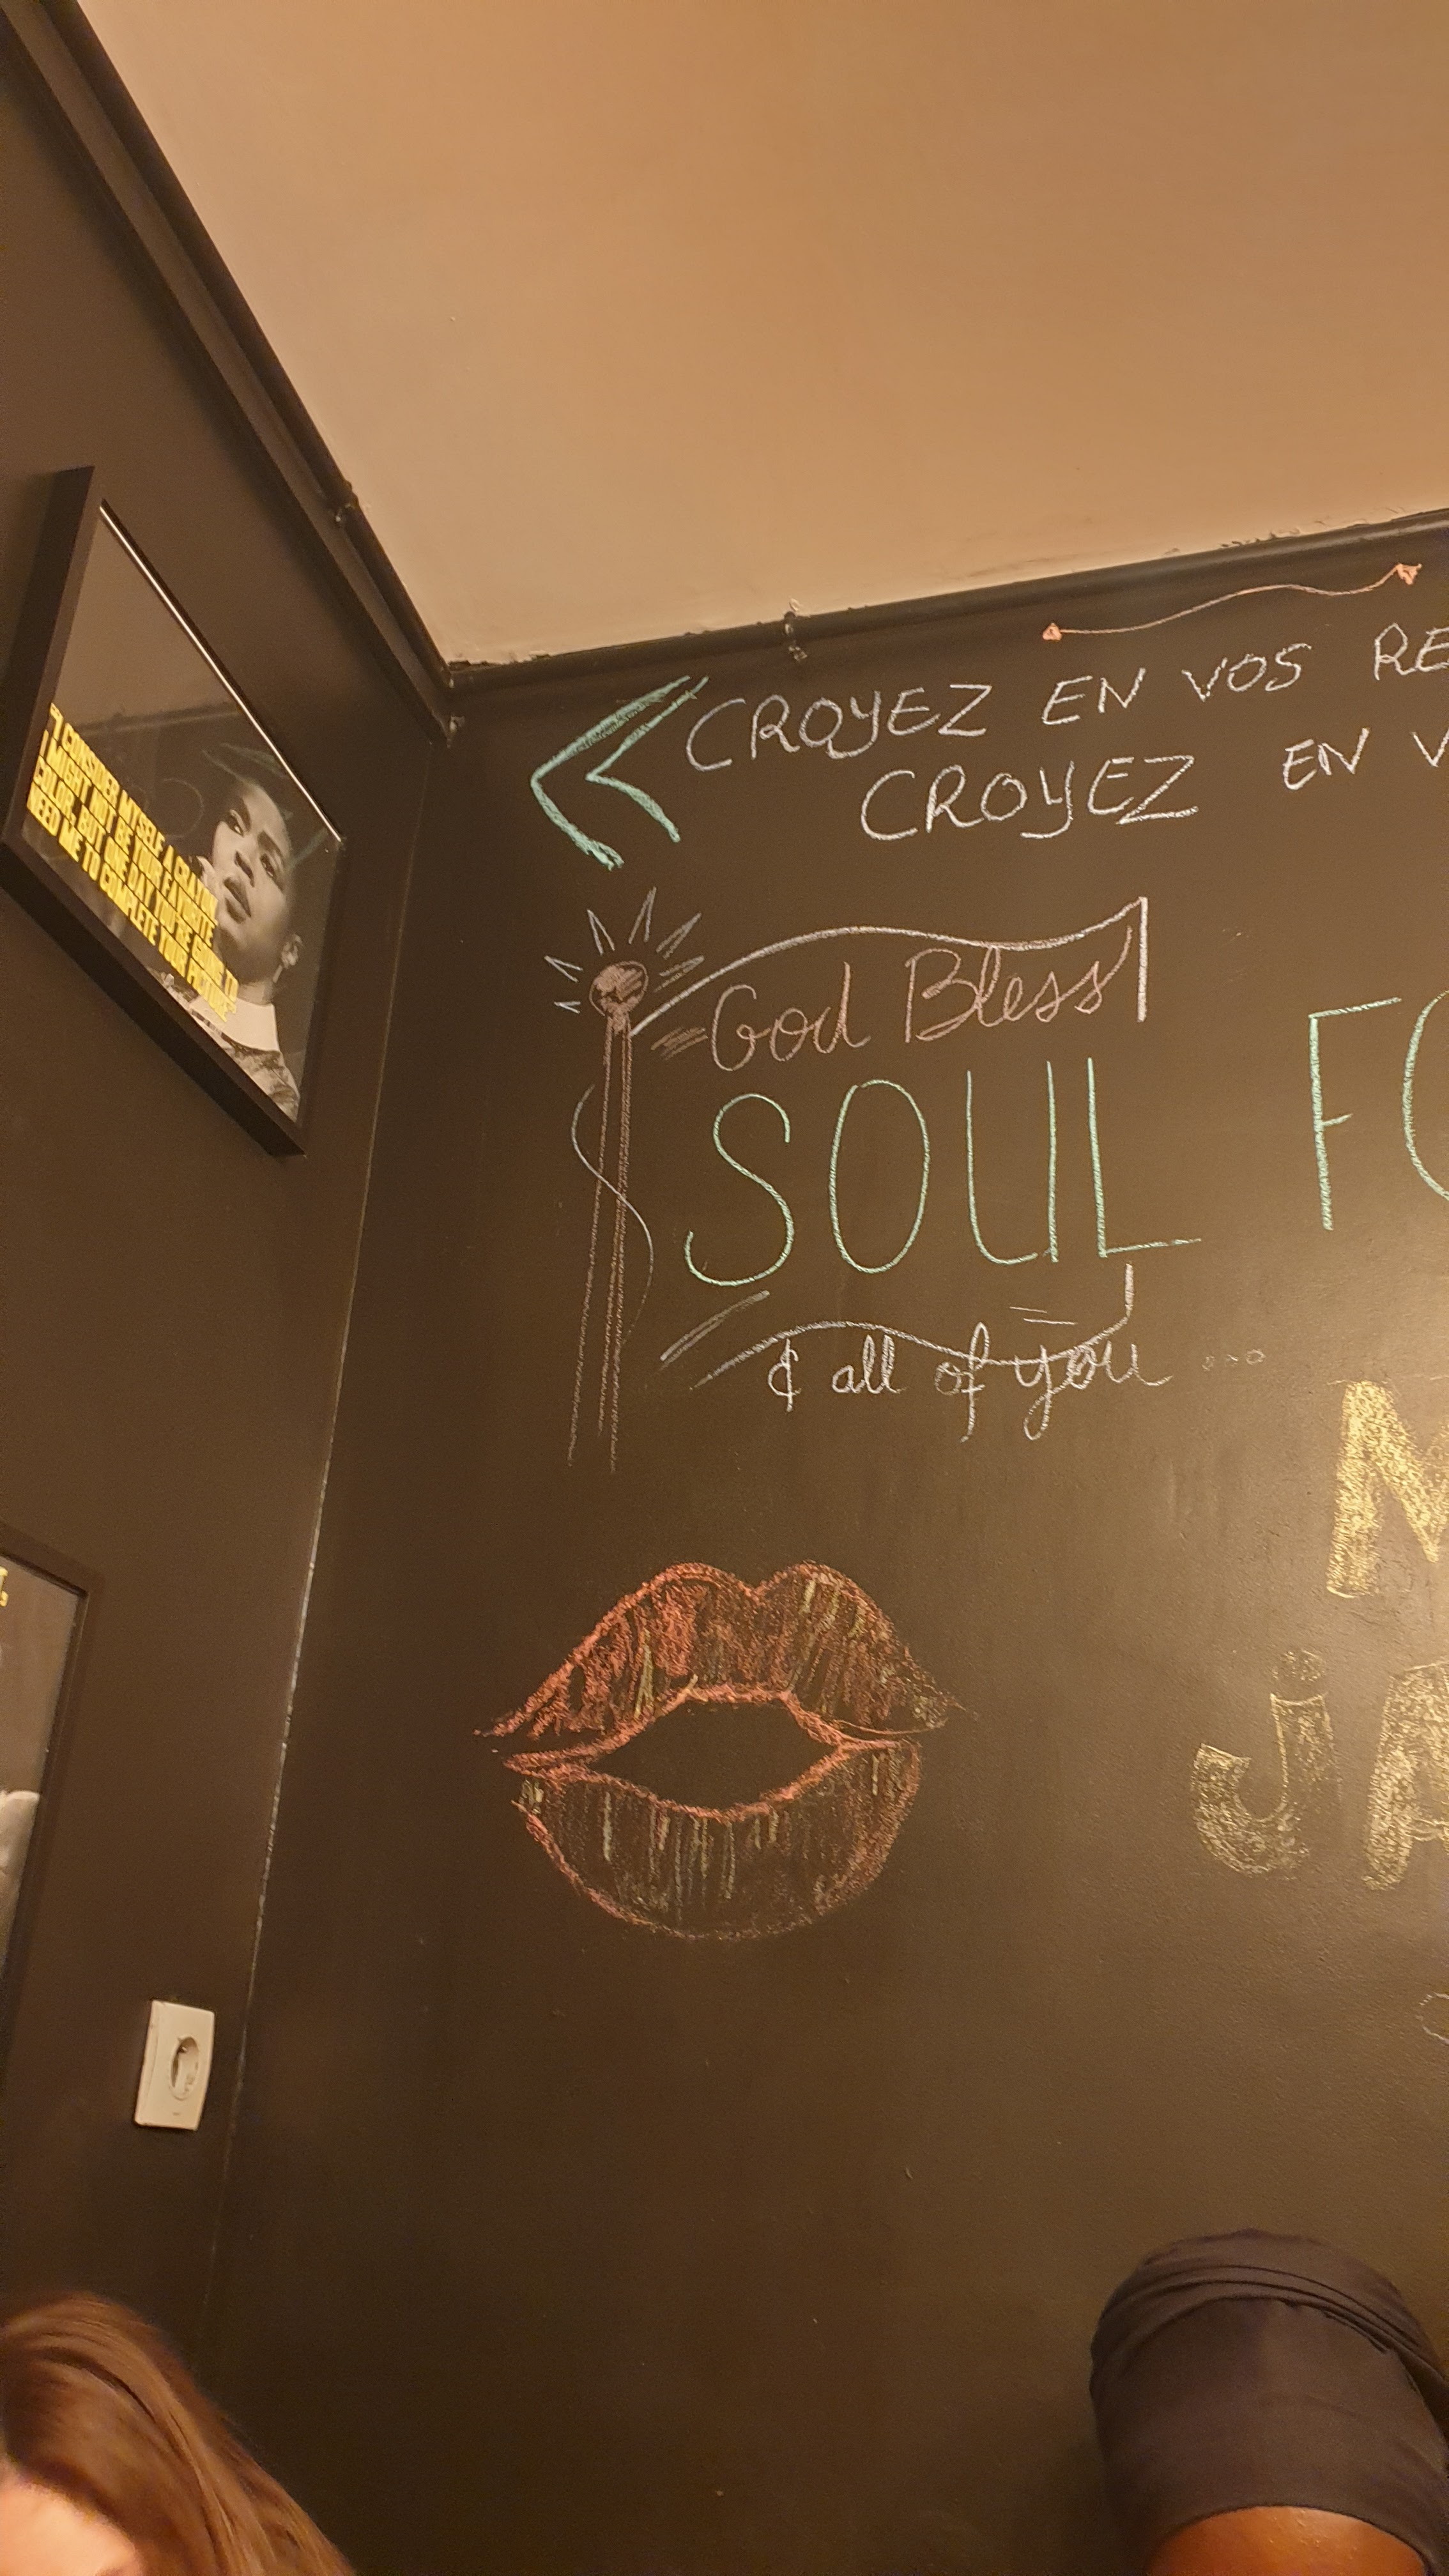 "I CONSIDER MYSELF A CRAYON,
I MIGHT NOT BE YOUR FAVORITE
COLOR, BUT ONE DAY YOU'RE GOING TO
NEED ME TO COMPLETE YOUR PICTURE"
CROYEZ EN VOS RE
CROYEZ EN V
God Bless
SOUL FO
& all of you ...
M
JA